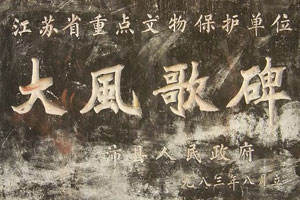 江苏省重点文物保护单位
大風歌碑
沛县人民政府
一九八三年八月立